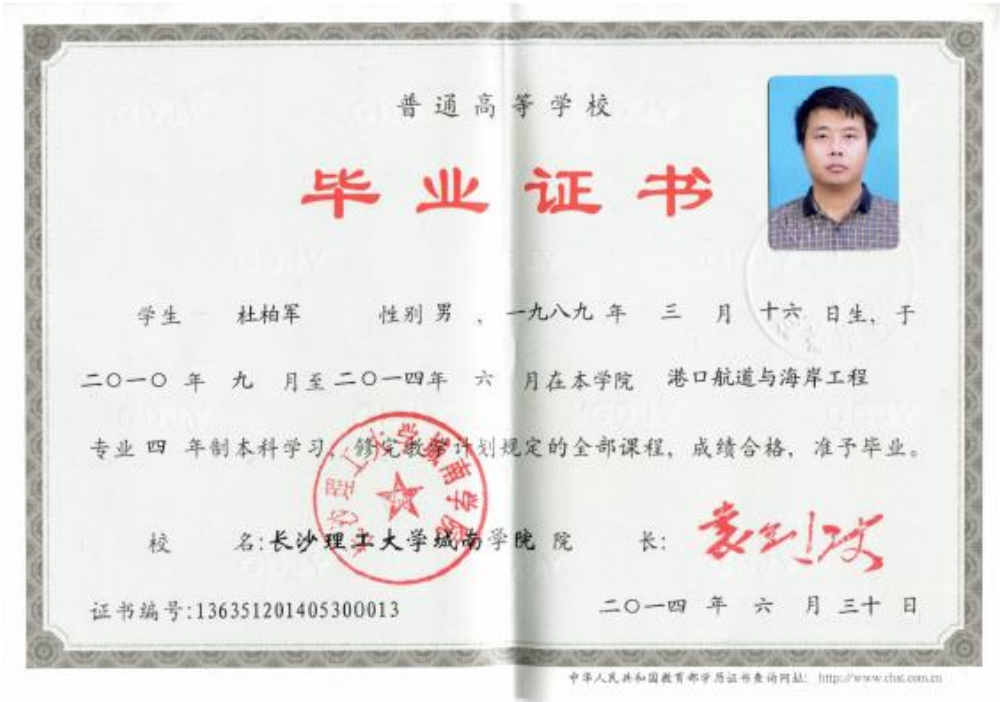 普通高等学校
毕业证书
学生 杜柏军 性别 男 ，一九八九 年 三 月 十六 日生，于
二〇一〇 年 九 月至 二〇一四年 六 月在本学院 港口航道与海岸工程
专业 四 年制本科学习，修完教学计划规定的全部课程，成绩合格，准予毕业。
校 名:长沙理工大学城南学院 院 长:
证书编号:136351201405300013
二〇一四 年 六 月 三十 日
长沙理工大学城南学院
中华人民共和国教育部学历证书查询网址: http://www.chsi.com.cn